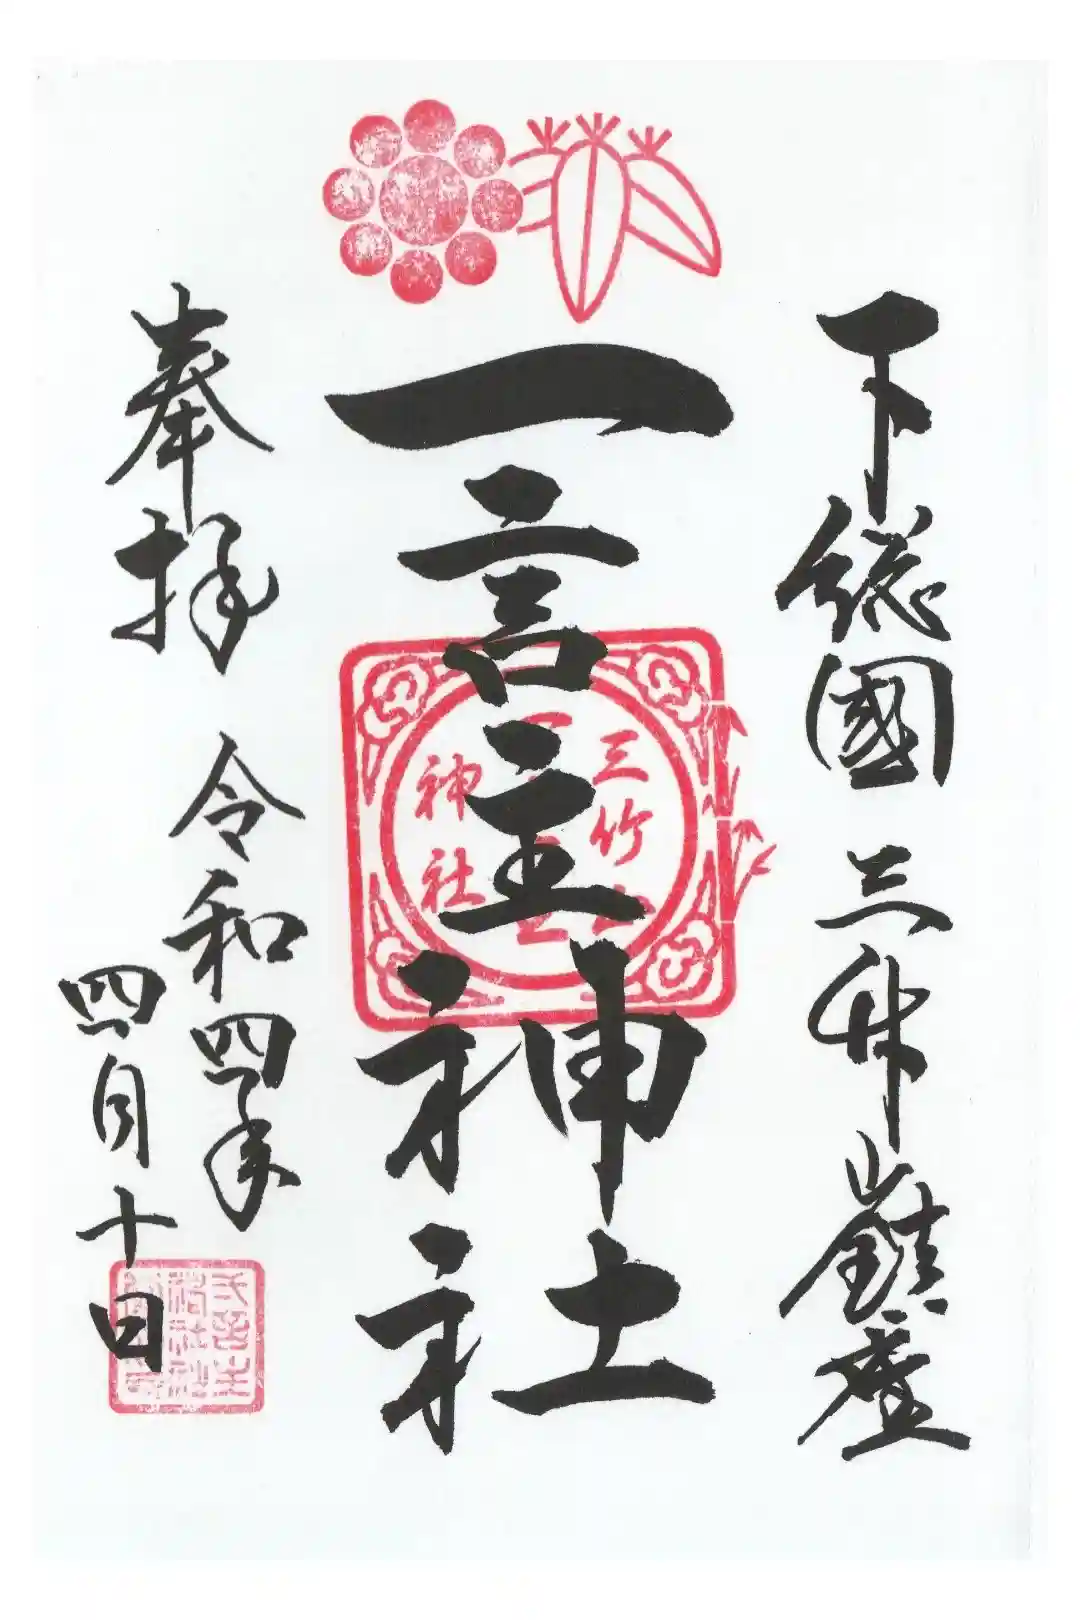 下総國三竹山鎮座
一言主神社
三竹山
神社
奉拝
令和四年
四月十日